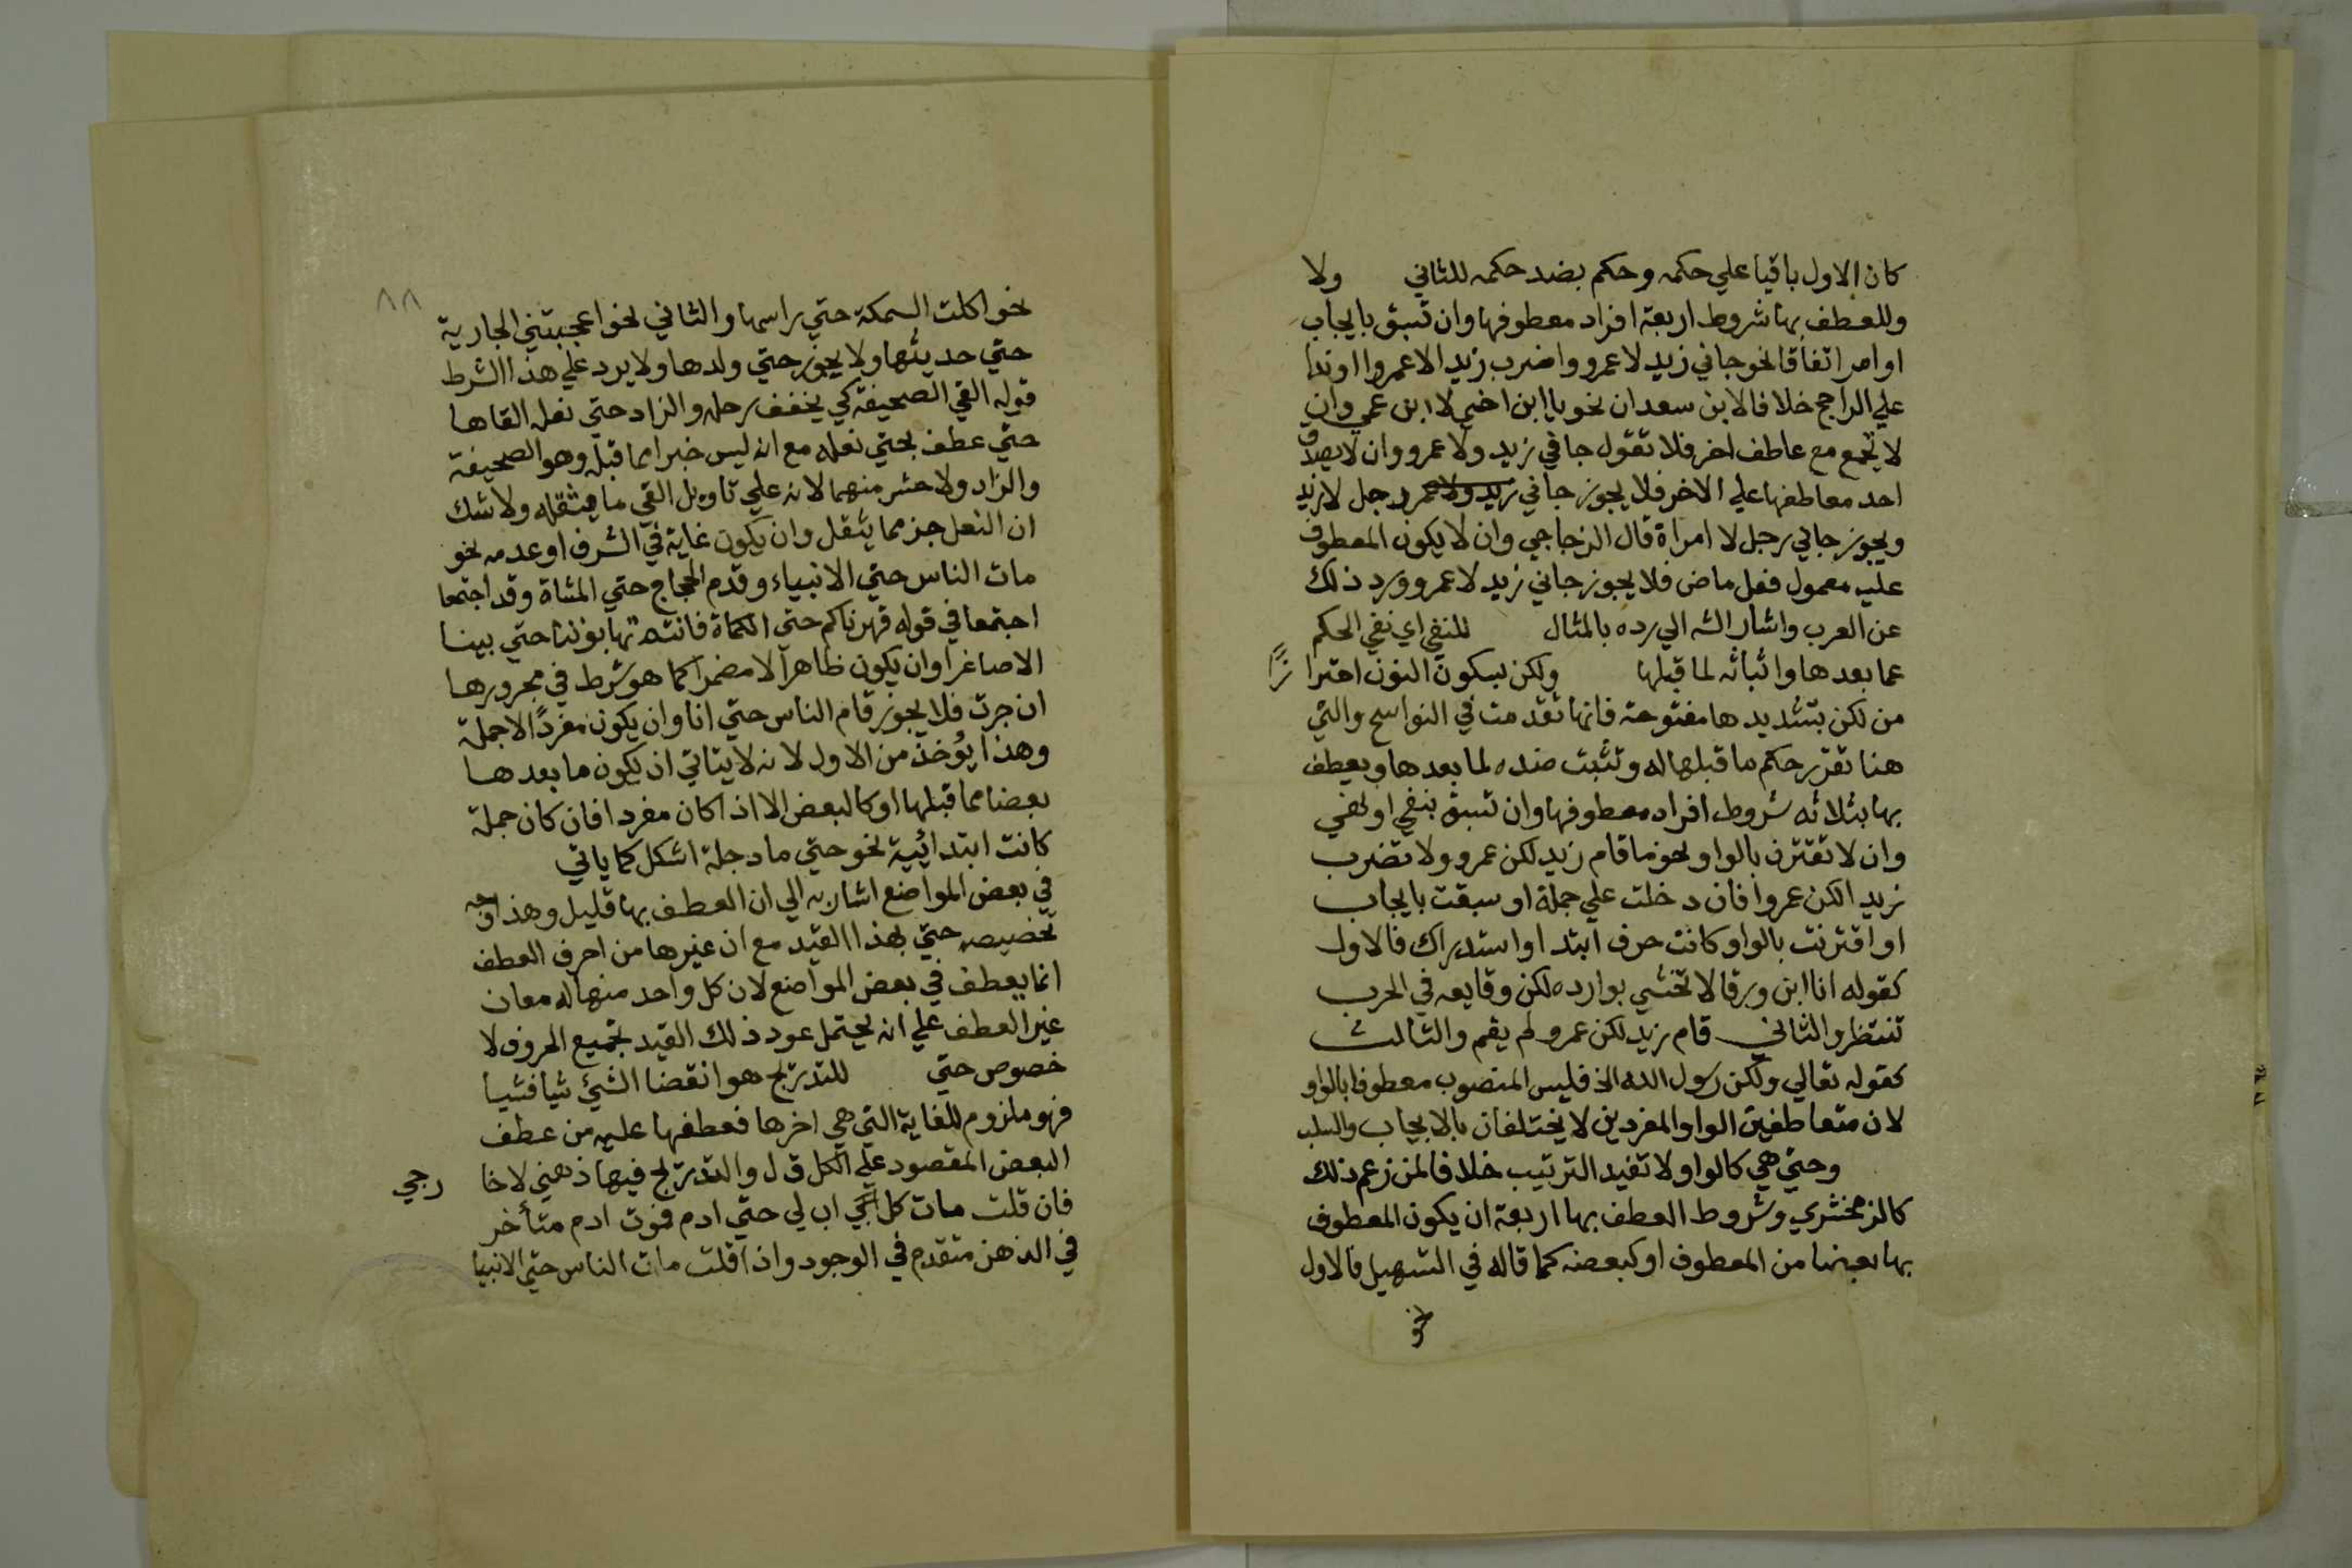 كان الاول باقيا علي حكمه وحكم بضد حكمه للثاني ولا
وللعطف بها شروط اربعة افراد معطوفها وان تسبق بايجاب
او امر اتفاقا نحو جاني زيد لا عمرو واضرب زيد الا عمروا اوندا
علي الراجح خلافا لابن سعدان نحو يا ابن اخي لا ابن عمي وان
لا تجمع مع عاطف اخر فلا تقول جاني زيد ولا عمرو وان لا يصدق
احد معاطفها علي الاخر فلا يجوز جاني زيد ولا عمرو رجل لا زيد
ويجوز جاني رجل لا امراة قال الزجاجي وان لا يكون المعطوف
عليه معمول فعل ماض فلا يجوز جاني زيد لا عمرو ورد ذلك
عن العرب واشار الش الي رده بالمثال للنفي اي نفي الحكم
عما بعدها واثباته لما قبلها ولكن بسكون النون احترا زًا
من لكن بتشديدها مفتوحة فانها تقدمت في النواسخ والتي
هنا تقرر حكم ما قبلها له وتثبت ضده لما بعدها ويعطف
بها بثلاثه شروط افراد معطوفها وان تسبق بنفي او نهي
وان لا تقترن بالواو نحو ما قام زيد لكن عمرو ولا تضرب
زيد الكن عمروا فان دخلت علي جملة او سبقت بايجاب
او اقترنت بالواو كانت حرف ابتدا واستدراك فالاول
كقوله انا ابن ورقا لا تخشي بوارده لكن وقايعه في الحرب
تنتظر والثاني قام زيد لكن عمرو لم يقم والثالث
كقوله تعالي ولكن رسول الله الخ فليس المنصوب معطوفا بالواو
لان متعاطفين الواو المفردين لا يختلفان بالايجاب والسلب
وحتي هي كالواو لا تفيد الترتيب خلافا لمن زعم ذلك
كالزمخشري وشروط العطف بها اربعة ان يكون المعطوف
بها بعضا من المعطوف او كبعضه كما قاله في التسهيل فالاول
نحو
٨٨
نحو اكلت السمكة حتي راسها والثاني نحو اعجبتني الجارية
حتي حديثها ولا يجوز حتي ولدها ولا يرد علي هذا الشرط
قوله القي الصحيفة كي يخفف رحله والزاد حتي نعله القاها
حتي عطف بحتي نعله مع انه ليس خبرا مما قبله وهو الصحيفة
والزاد ولا حشر منهما لانه علي تاويل القي ما يثقله ولا شك
ان النعل جز مما يثقل وان يكون غاية في الشرف او عدمه نحو
مات الناس حتي الانبياء وقدم الحجاج حتي المشاة وقد اجتمعا
اجتمعا في قوله قهرناكم حتي الكماة فانتم تهابوننا حتي بنينا
الاصاغرا وان يكون ظاهرا لا مضمرا كما هو شرط في مجرورها
ان جرت فلا يجوز قام الناس حتي انا وان يكون مفردًا لا جملة
وهذا يؤخذ من الاول لانه لا يتاتي ان يكون ما بعدها
بعضا مما قبلها او كالبعض الا اذا كان مفردا فان كان جملة
كانت ابتدائية نحو حتي ما دجلة اشكل كما ياتي
في بعض المواضع اشار به الي ان العطف بها قليل وهذا وجه
تخصيص حتي بهذا القيد مع ان غيرها من احرف العطف
انما يعطف في بعض المواضع لان كل واحد منها له معان
غير العطف علي انه يحتمل عود ذلك القيد بجميع الحروف لا
خصوص حتي للتدريج هو انقضا الشيئ شيا فشيا
فهو ملزوم للغاية التي هي اخرها فعطفها عليه من عطف
البعض المقصود علي الكل قال والتدريج فيها ذهني لا خا رجي
فان قلت مات كل اب لي حتي ادم فموت ادم متأخر
في الذهن متقدم في الوجود واذا قلت مات الناس حتي الانبيا